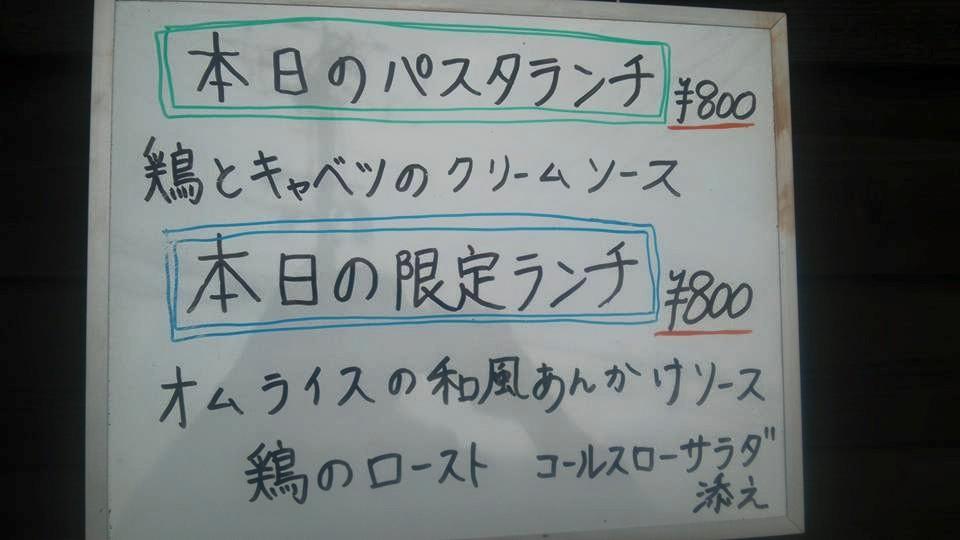 本日のパスタランチ ¥800
鶏とキャベツのクリームソース
本日の限定ランチ ¥800
オムライスの和風あんかけソース
鶏のロースト コールスローサラダ
添え